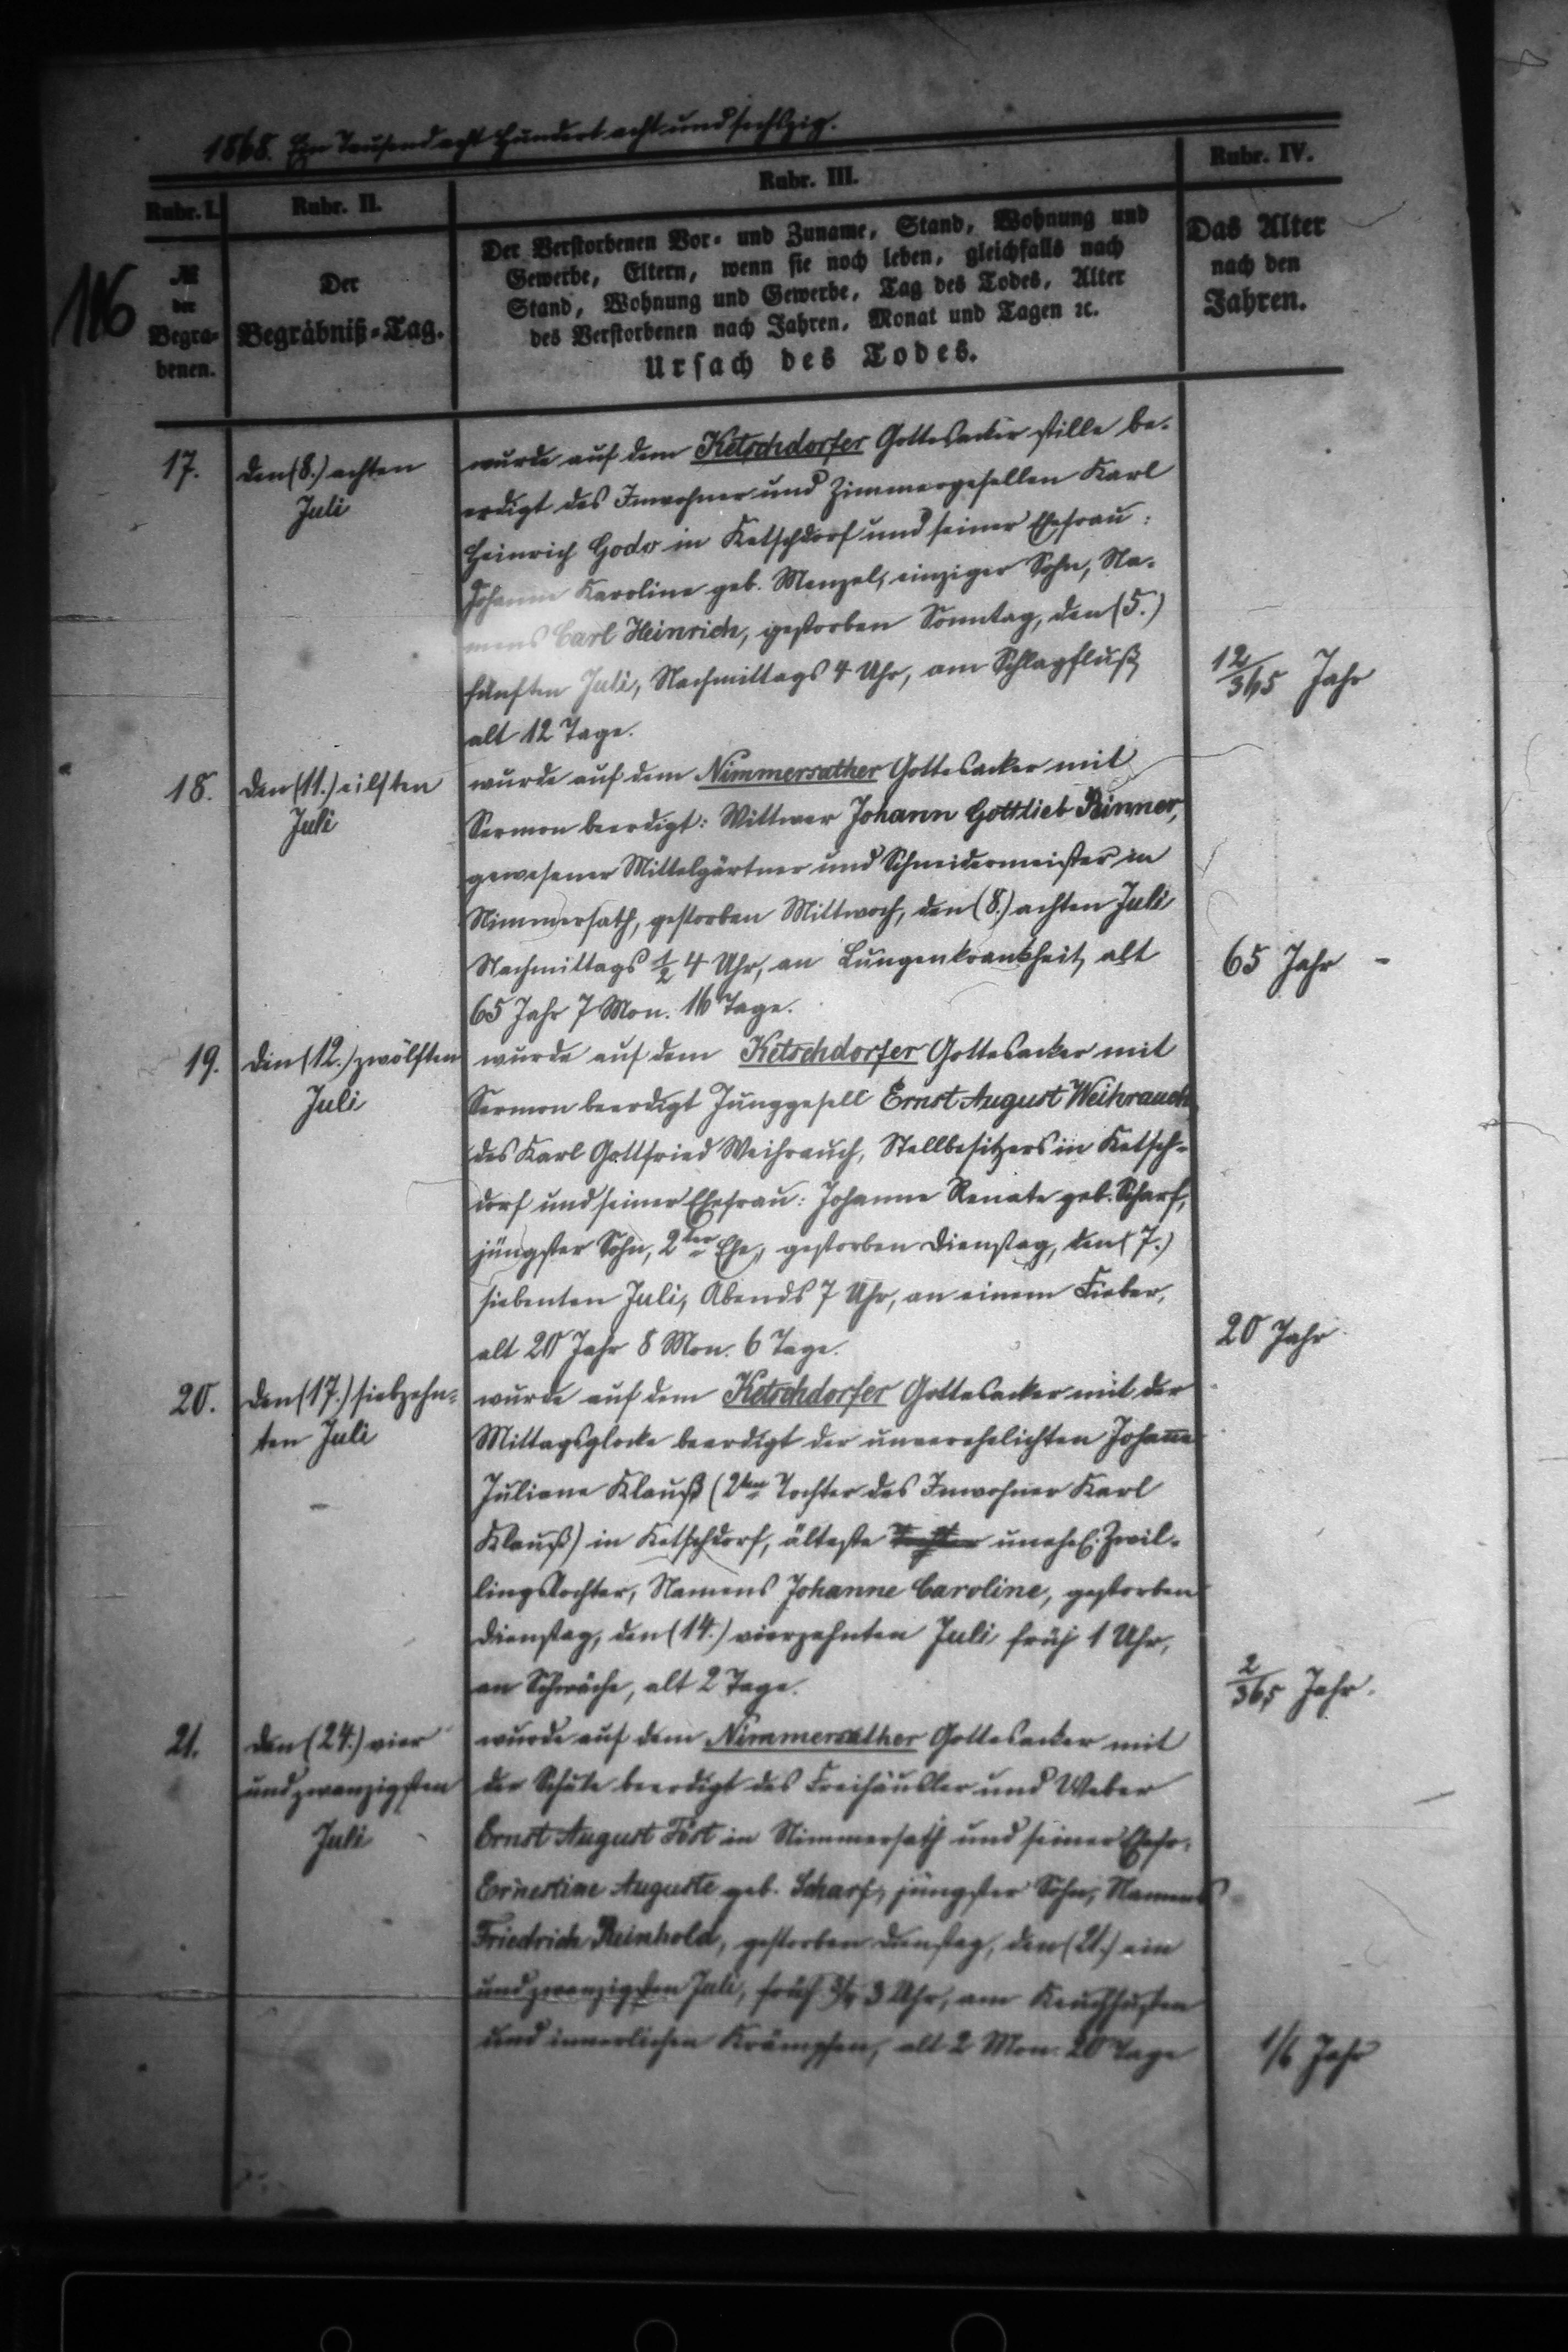 1868. Ein Tausend acht Hundert acht und sechszig.
Rubr. I. Rubr. II. Rubr. III. Rubr. IV.
116
№ der Begra-
benen.
Der
Begräbniß-Tag.
Der Verstorbenen Vor- und Zuname, Stand, Wohnung und
Gewerbe, Eltern, wenn sie noch leben, gleichfalls nach
Stand, Wohnung und Gewerbe, Tag des Todes, Alter
des Verstorbenen nach Jahren, Monat und Tagen ꝛc.
Ursach des Todes.
Das Alter
nach den
Jahren.
17.
den (8.) achten
Juli
wurde auf dem Ketschdorfer Gottesacker stille be-
erdigt des Inwohner und Zimmergesellen Karl
Heinrich in Ketschdorf und seiner Ehefrau:
Johanne Karoline geb. Menzel, einziger Sohn, Na-
mens Carl Heinrich, gestorben Sonntag, den (5.)
fünften Juli, Nachmittags 4 Uhr, am Schlagfluß,
alt 12 Tage.
12/365 Jahr
18.
den (11.) eilften
Juli
wurde auf dem Nimmersather Gottesacker mit
Sermon beerdigt: Wittwer Johann Gottlieb Rinner,
gewesener Mittelgärtner und Schneidermeister in
Nimmersath, gestorben Mittwoch, den (8.) achten Juli
Nachmittags 1/2 4 Uhr, an Lungenkrankheit, alt
65 Jahr 7 Mon. 16 Tage.
65 Jahr -
19.
den (12.) zwölften
Juli
wurde auf dem Ketschdorfer Gottesacker mit
Sermon beerdigt Junggesell Ernst August Weihrauch
des Karl Gottfried Weihrauch, Stellbesitzers in Ketsch-
dorf und seiner Ehefrau: Johanne Renate geb. Scharf,
jüngster Sohn, 2ter Ehe, gestorben Dienstag, den (7.)
siebenten Juli, Abends 7 Uhr, an einem Fieber,
alt 20 Jahr 8 Mon. 6 Tage.
20 Jahr
20.
den (17.) siebzehn-
ten Juli
wurde auf dem Ketschdorfer Gottesacker mit der
Mittagsglocke beerdigt der unverehelichten Johanne
Juliane Klauß (2ten Tochter des Inwohner Karl
Klauß) in Ketschdorf, älteste Tochter unehel. Zwil-
lingstochter, Namens Johanne Caroline, gestorben
Dienstag, den (14.) vierzehnten Juli früh 1 Uhr,
an Schwäche, alt 2 Tage.
2/365 Jahr.
21.
den (24.) vier
und zwanzigsten
Juli
wurde auf dem Nimmersather Gottesacker mit
der Schule beerdigt des Freihäusler und Weber
Ernst August in Nimmersath und seiner Ehefr.
Ernestine Auguste geb. Scharf, jüngster Sohn, Namens
Friedrich Reinhold, gestorben Dienstag, den (21.) ein
und zwanzigsten Juli, früh 3/4 3 Uhr, am Keuchhusten
und innerlichen Krämpfen, alt 2 Mon. 20 Tage
1/6 Jahr